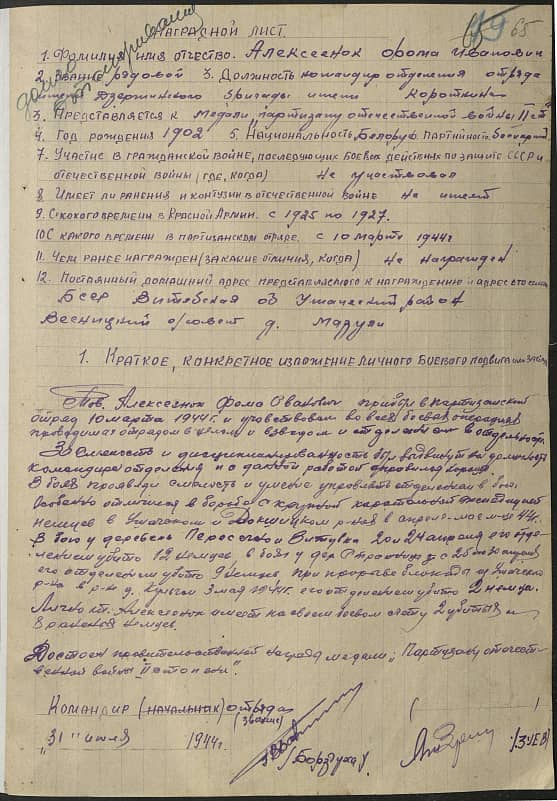 65
НАГРАДНОЙ ЛИСТ.
1. Фамилия имя отчество. Алексеенок Фома Иванович
2. Звание рядовой 3. Должность командир отделения отряда
Дзержинского бригады имени Короткина
3. Представляется к медали, партизану отечественной войны II ст
4. Год рождения 1902 5. Национальность Белорус Партийность беспарт
7. Участие в гражданской войне, последующих боевых действиях по защите СССР и
отечественной войны (где, когда) Не участвовал
8 Имеет ли ранения и контузии в отечественной войне Не имеет
9. С скокого времени в Красной Армии. с 1925 по 1927.
10 С какого времени в партизанском отряде. с 10 марта 1944г
11. Чем ранее награжден (за какие отличия, когда) Не награжден
12. Постоянный домашний адрес представляемого к награждению и адрес его семьи
БССР Витебская об Ушачский район
Весницкий с/совет д. Мазури
1. Краткое, конкретное изложение личного боевого подвига или заслуг
Тов. Алексеенок Фома Иванович прибыл в партизанский
отряд 10 марта 1944г. и участвовал во всех боевых операциях
проводимых отрядом в целом и взводом и отделением в отдельности.
За смелость и дисциплинированность был выдвинут на должность
командира отделения и с данной работой справился хорошо.
В боях проявил смелость и умение управлять отделением в бою.
Особенно отличился в борьбе с крупной карательной экспедицией
немцев в Ушачском и Докшицком р-нах в апреле-мае м-це 44г.
В бою у деревень Пересечно и Витувка 20 и 24 апреля его отде-
лением убито 12 немцев, в боях у дер с 25 по 30 апреля
его отделением убито 9 немцев, при прорыве блокады из Ушачского
р-на в р-н д. 3 мая 1944г. его отделением убито 2 немца.
Лично т. Алексеенок имеет на своем боевом счету 2 убитых и
3 раненых немцев.
Достоин правительственной награды медали "Партизану отечест-
венной войны II степени".
Командир (начальник) отряда
(звание)
"31" июля 1944г.
/Борздуха/
/ЗУЕВ/